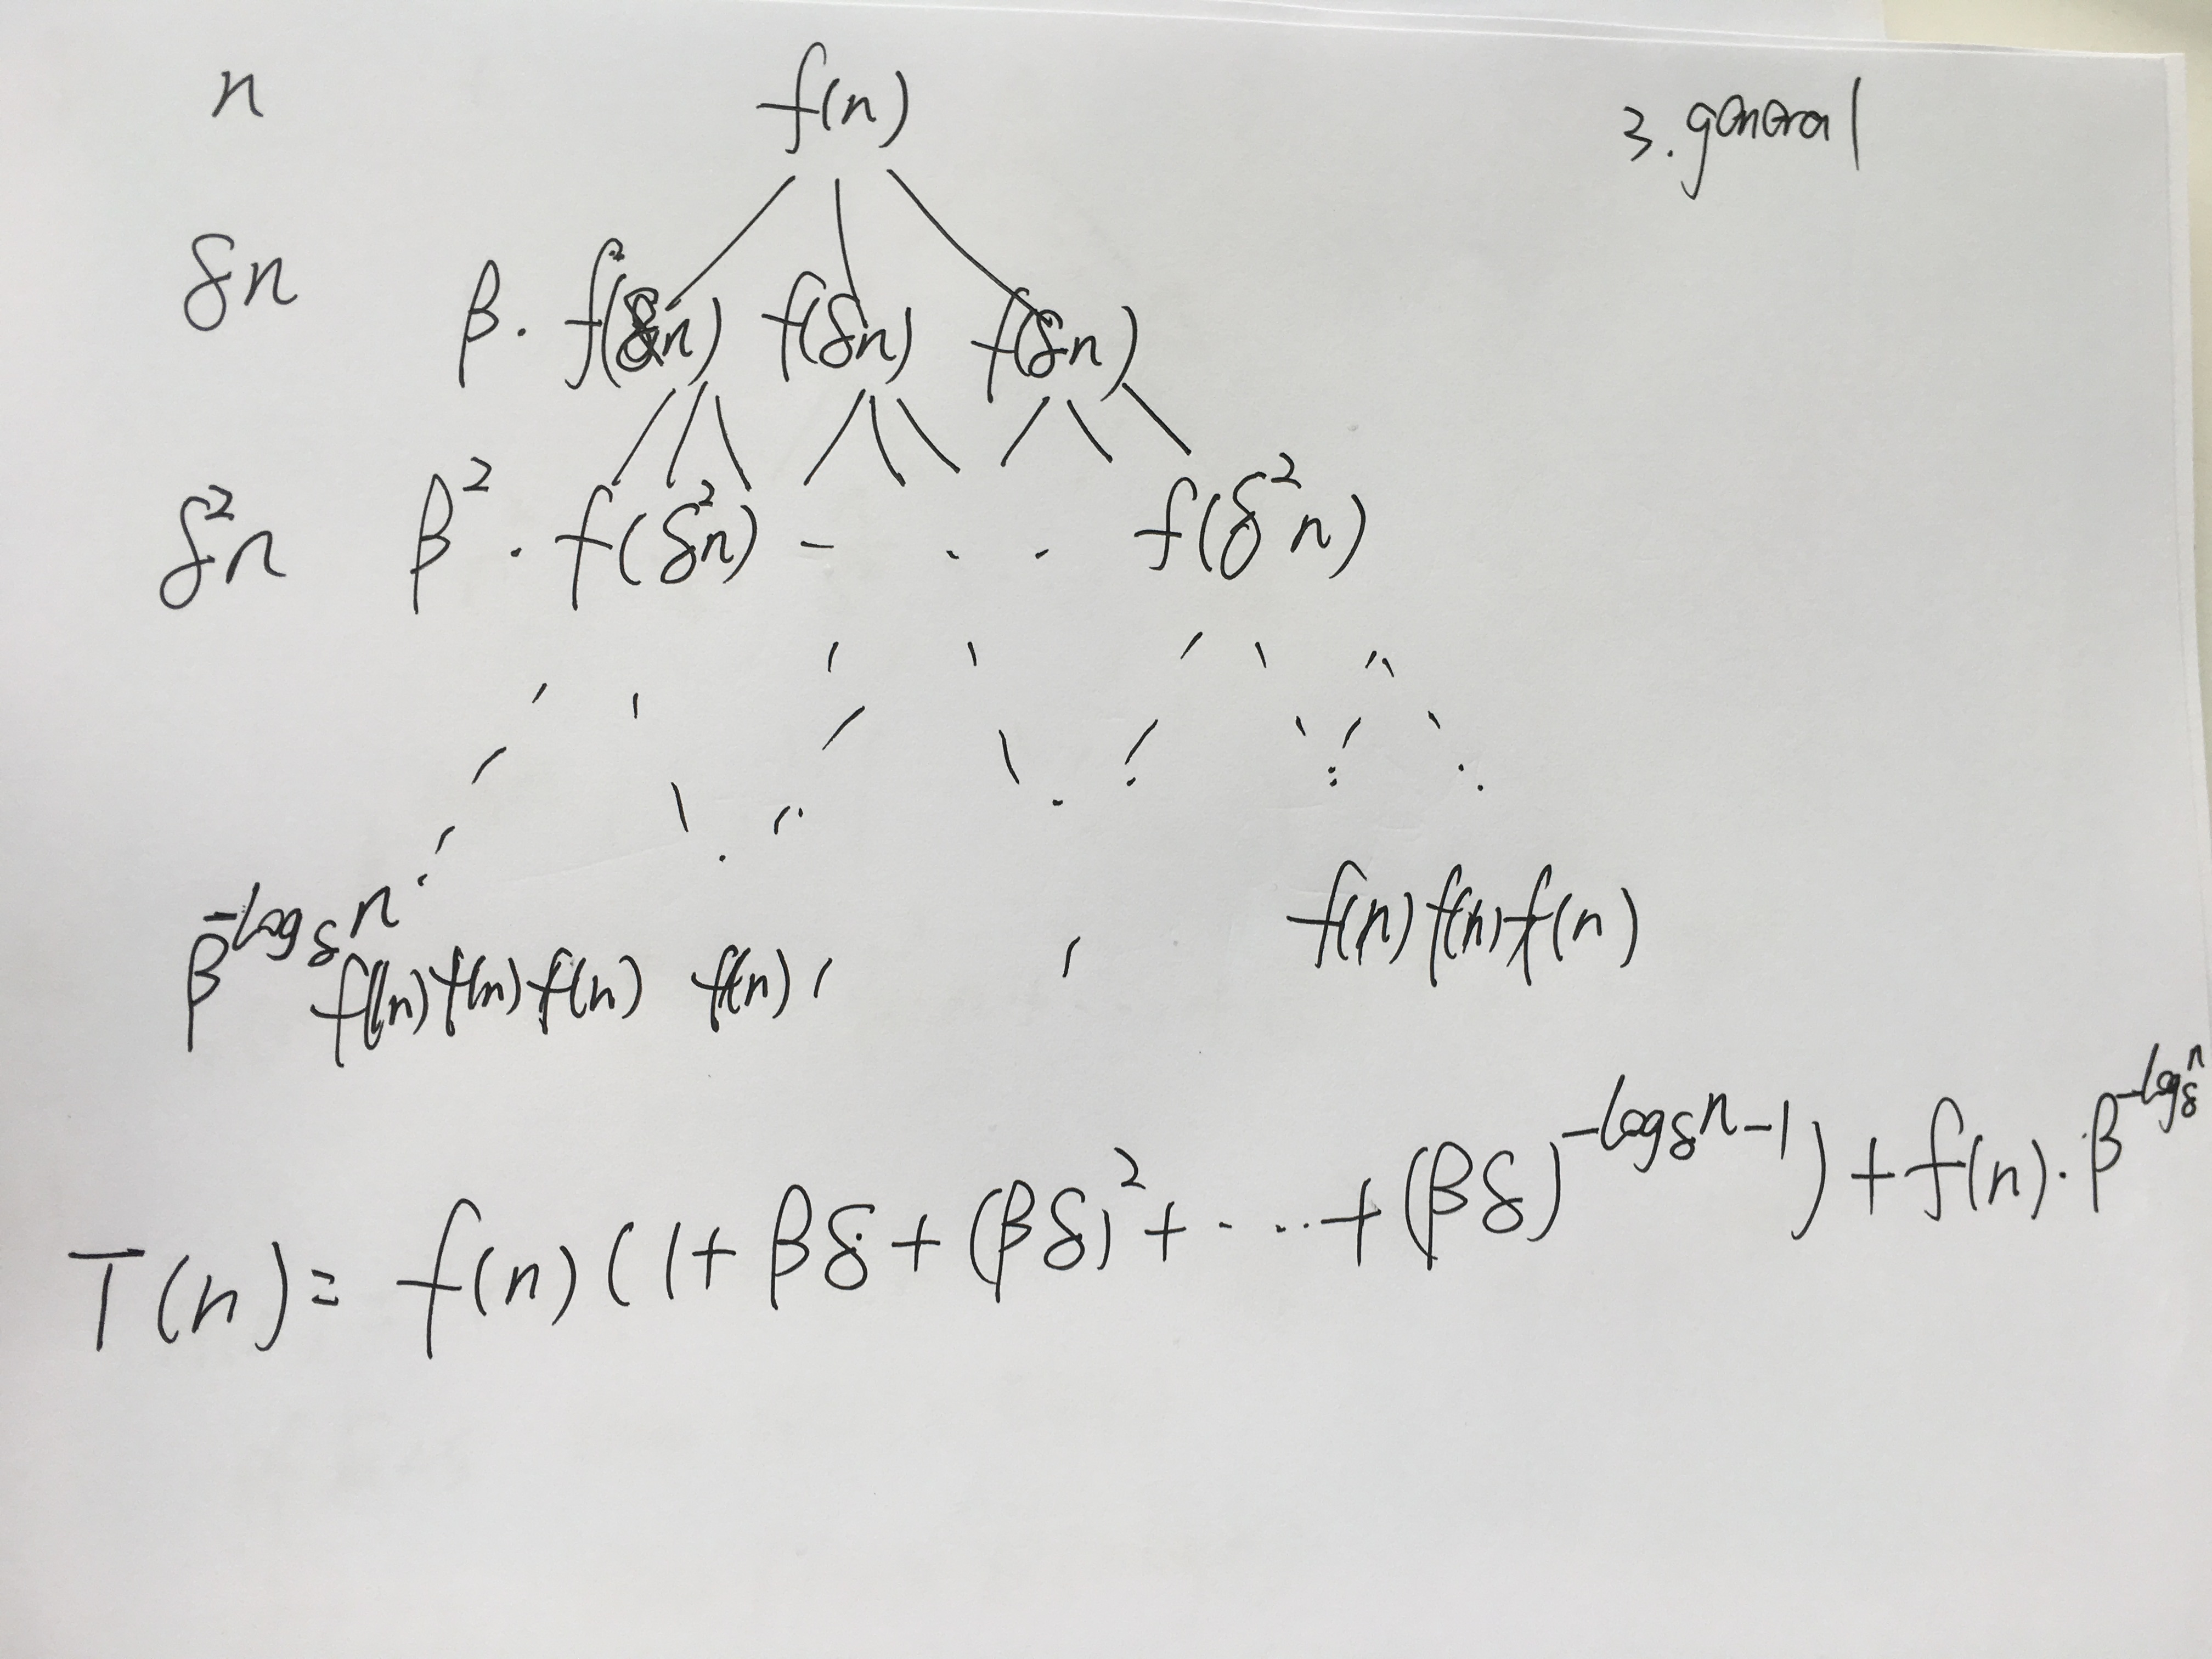 3. general
n f(n)
δn β· f(δn) f(δn) f(δn)
δ²n β²· f(δ²n) - · · f(δ²n)
β^{-log_δ n} f(n) f(n) f(n) f(n) , , f(n) f(n) f(n)
T(n) = f(n) (1 + βδ + (βδ)² + ... + (βδ)^{-log_δ n - 1}) + f(n)· β^{-log_δ n}